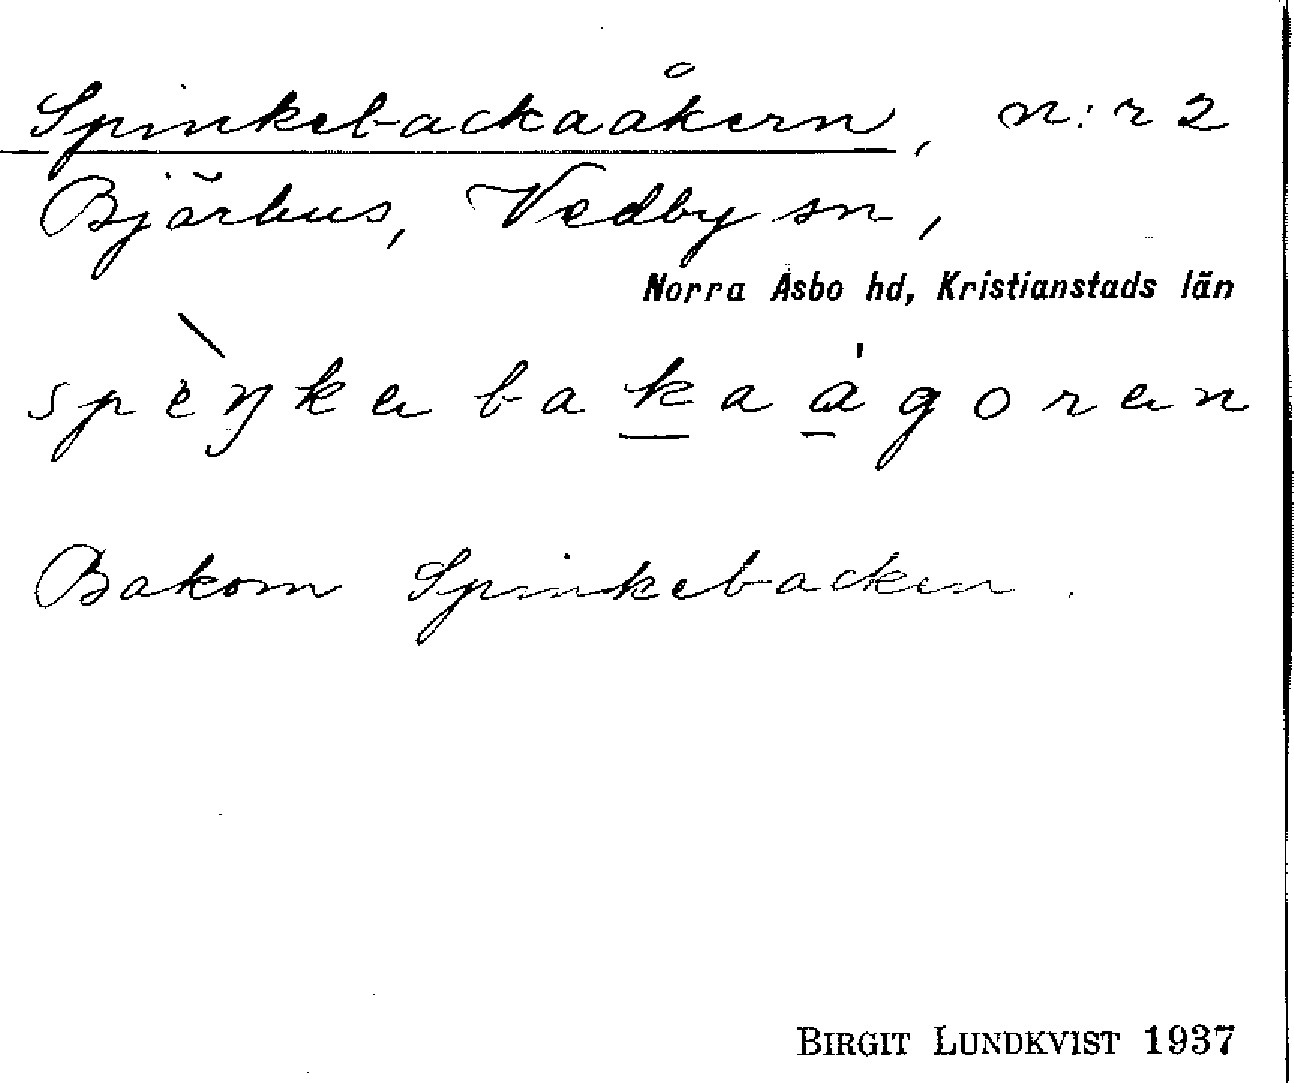 Spinkebackaåkern, n:r 2
Bjärhus, Vedby sn,
Norra Åsbo hd, Kristianstads län
spèŋkabakaàgoran
Bakom Spinkebacken.
BIRGIT LUNDKVIST 1937